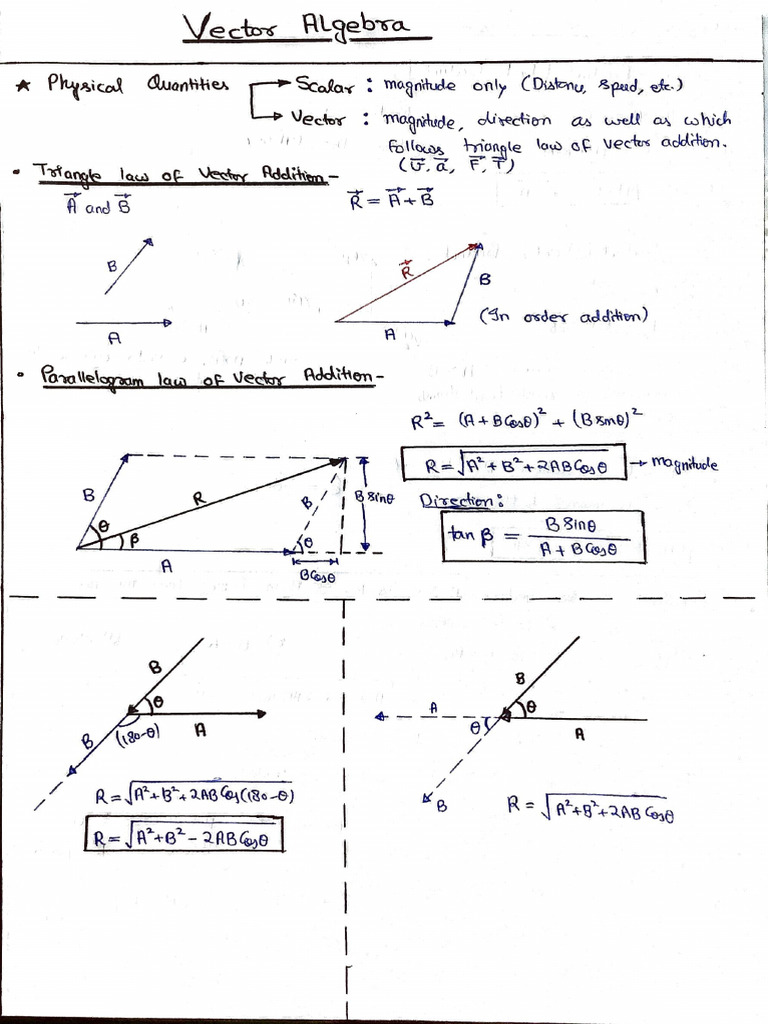 Vector Algebra
★ Physical Quantities → Scalar : magnitude only (Distanu, speed, etc.)
→ Vector : magnitude, direction as well as which
follows triangle law of vector addition.
(v⃗, a⃗, F⃗, T⃗)
• Triangle law of Vector Addition-
A⃗ and B⃗ R⃗ = A⃗ + B⃗
B
A
R⃗
B
A
(In order addition)
• Parallelogram law of Vector Addition-
R² = (A + BCosθ)² + (B sinθ)²
R = √A² + B² + 2ABCosθ → magnitude
Direction:
tan β = B Sinθ / A + BCosθ
B
R
B
B sinθ
θ
β
θ
A
BCosθ
B
θ
A
B
(180-θ)
R = √A² + B² + 2AB Cos(180-θ)
R = √A² + B² - 2ABCosθ
B
A
θ
θ
A
B
R = √A² + B² + 2ABCosθ